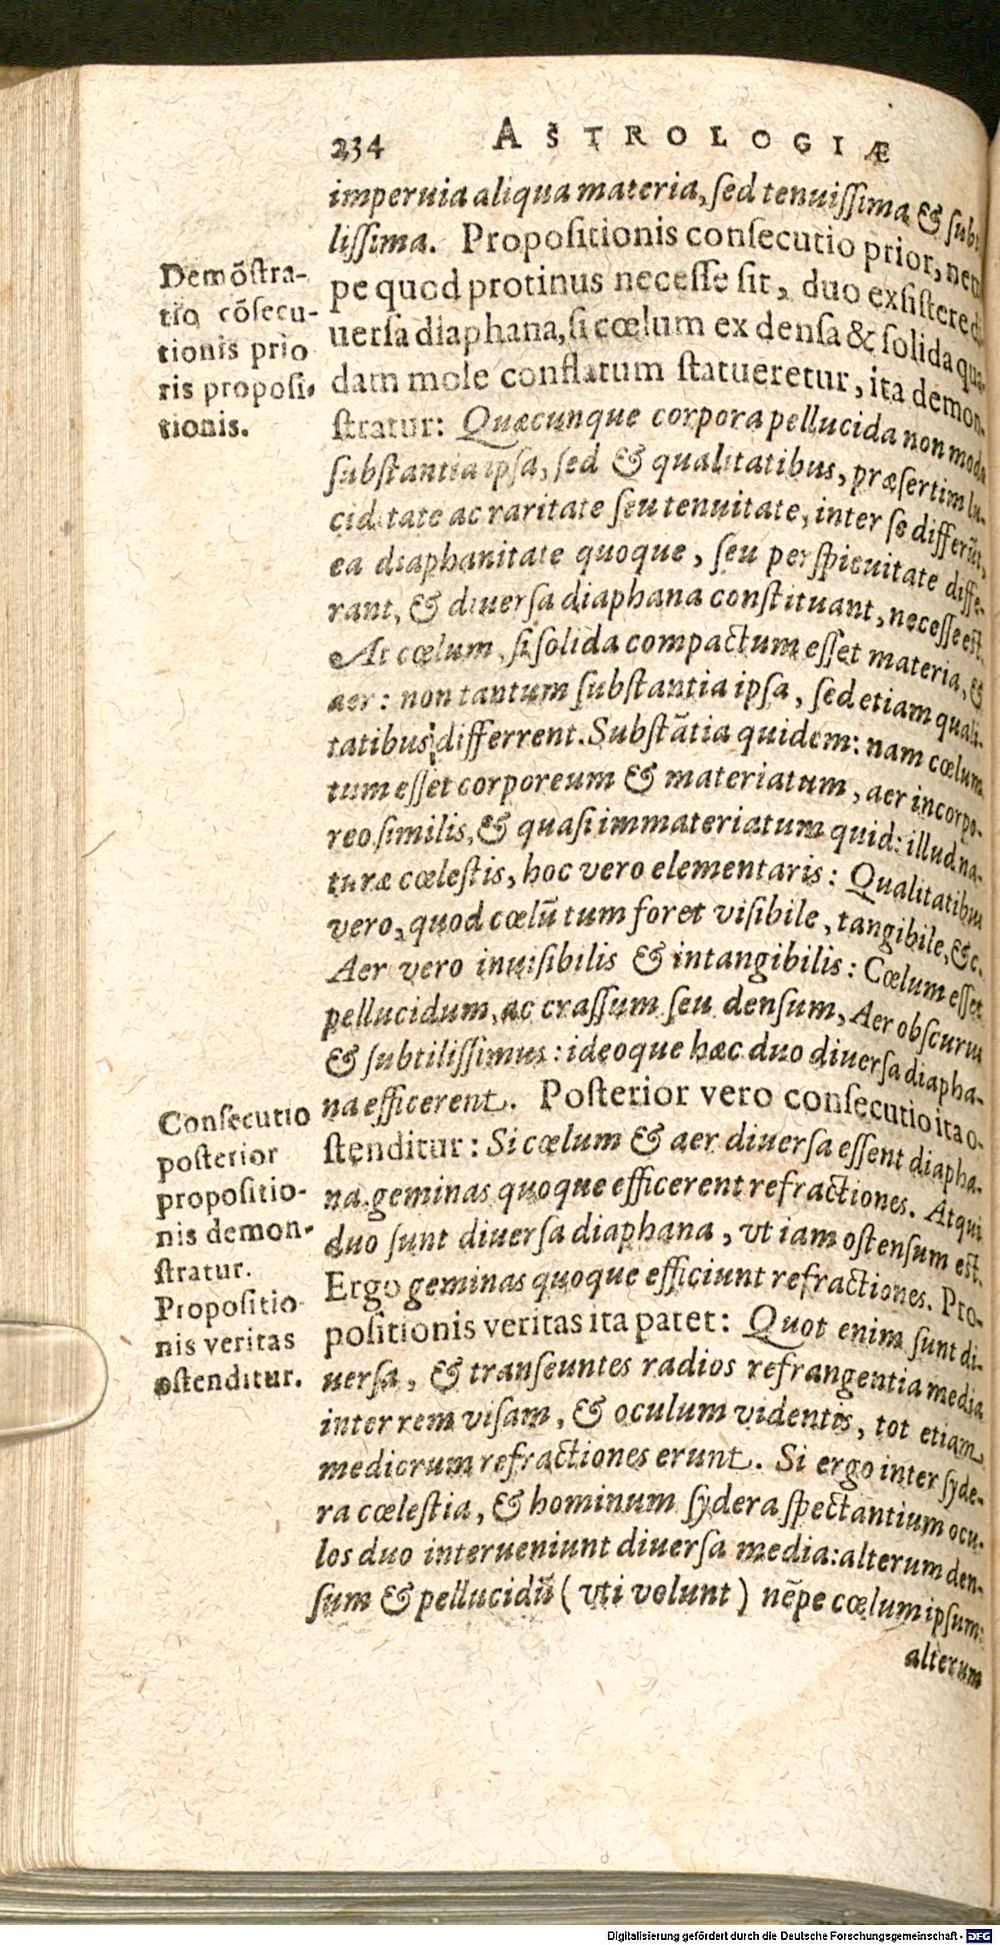 234 ASTROLOGIÆ
imperuia aliqua materia, ſed tenuiſſima & ſubti
liſſima. Propoſitionis conſecutio prior, nem
pe quod protinus neceſſe ſit, duo exſiſtere di
uerſa diaphana, ſi cœlum ex denſa & ſolida qua
dam mole conflatum ſtatueretur, ita demon-
ſtratur: Quæcunque corpora pellucida non modo
ſubſtantia ipſa, ſed & qualitatibus, præſertim lu-
ciditate ac raritate ſeu tenuitate, inter ſe differũt,
ea diaphanitate quoque, ſeu perſpicuitate diffe-
rant, & diuerſa diaphana conſtituant, neceſſe eſt.
At cœlum, ſi ſolida compactum eſſet materia, &
aer: non tantum ſubſtantia ipſa, ſed etiam quali-
tatibus differrent. Subſtãtia quidem: nam cœlum
tum eſſet corporeum & materiatum, aer incorpo-
reo ſimilis, & quaſi immateriatum quid: illud na-
turæ cœleſtis, hoc vero elementaris: Qualitatibus
vero, quod cœlũ tum foret viſibile, tangibile, &c.
Aer vero inuiſibilis & intangibilis: Cœlum eſſet
pellucidum, ac craſſum ſeu denſum, Aer obſcurus
& ſubtiliſſimus: ideoque hæc duo diuerſa diapha-
na efficerent. Poſterior vero conſecutio ita o-
ſtenditur: Si cœlum & aer diuerſa eſſent diapha-
na, geminas quoque efficerent refractiones. Atqui
duo ſunt diuerſa diaphana, vt iam oſtenſum eſt.
Ergo geminas quoque efficiunt refractiones. Pro-
poſitionis veritas ita patet: Quot enim ſunt di-
uerſa, & tranſeuntes radios refrangentia media
inter rem viſam, & oculum videntis, tot etiam
mediorum refractiones erunt. Si ergo inter ſyde-
ra cœleſtia, & hominum ſydera ſpectantium ocu-
los duo interueniunt diuerſa media: alterum den-
ſum & pellucidũ (vti volunt) nẽpe cœlum ipſum:
alterum
Demõſtra-
tio cõſecu-
tionis prio
ris propoſi-
tionis.
Conſecutio
poſterior
propoſitio-
nis demon-
ſtratur.
Propoſitio
nis veritas
oſtenditur.
Digitalisierung gefördert durch die Deutsche Forschungsgemeinschaft - DFG